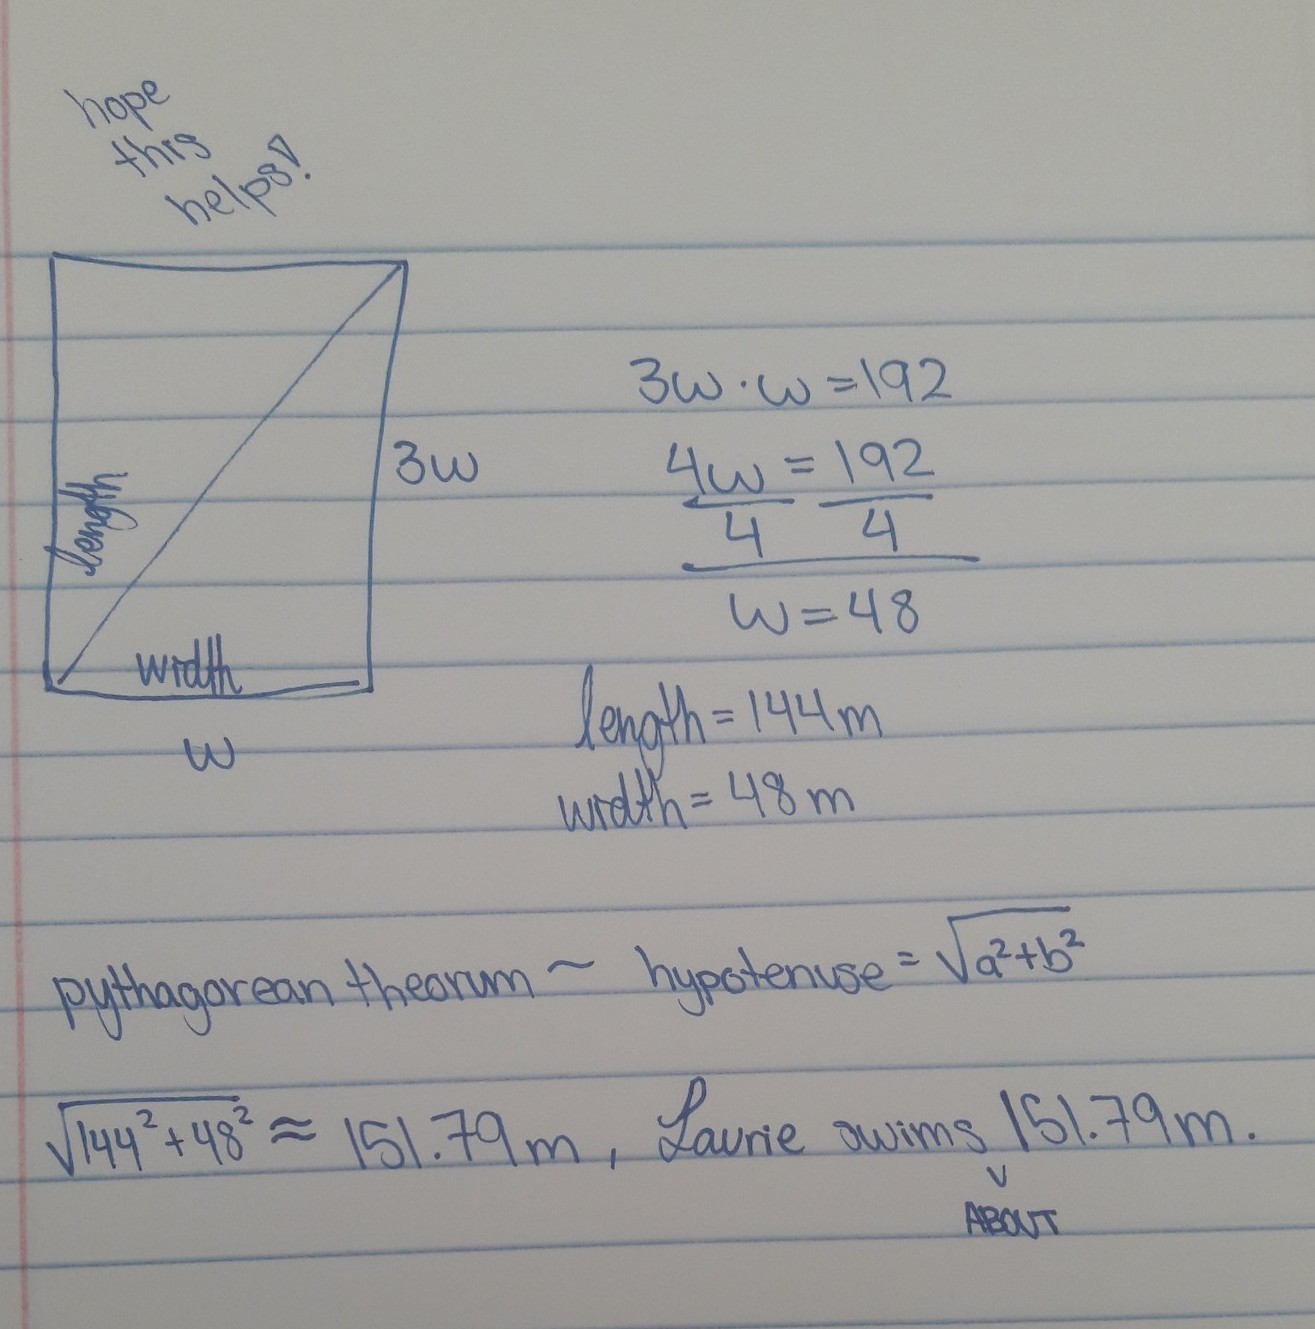 hope
this
helps!
length
3w
width
w
3w · w = 192
4w = 192
4 4
w = 48
length = 144m
width = 48m
pythagorean theorum ~ hypotenuse = √a²+b²
√144²+48² ≈ 151.79m, Laurie swims 151.79m.
v
ABOUT